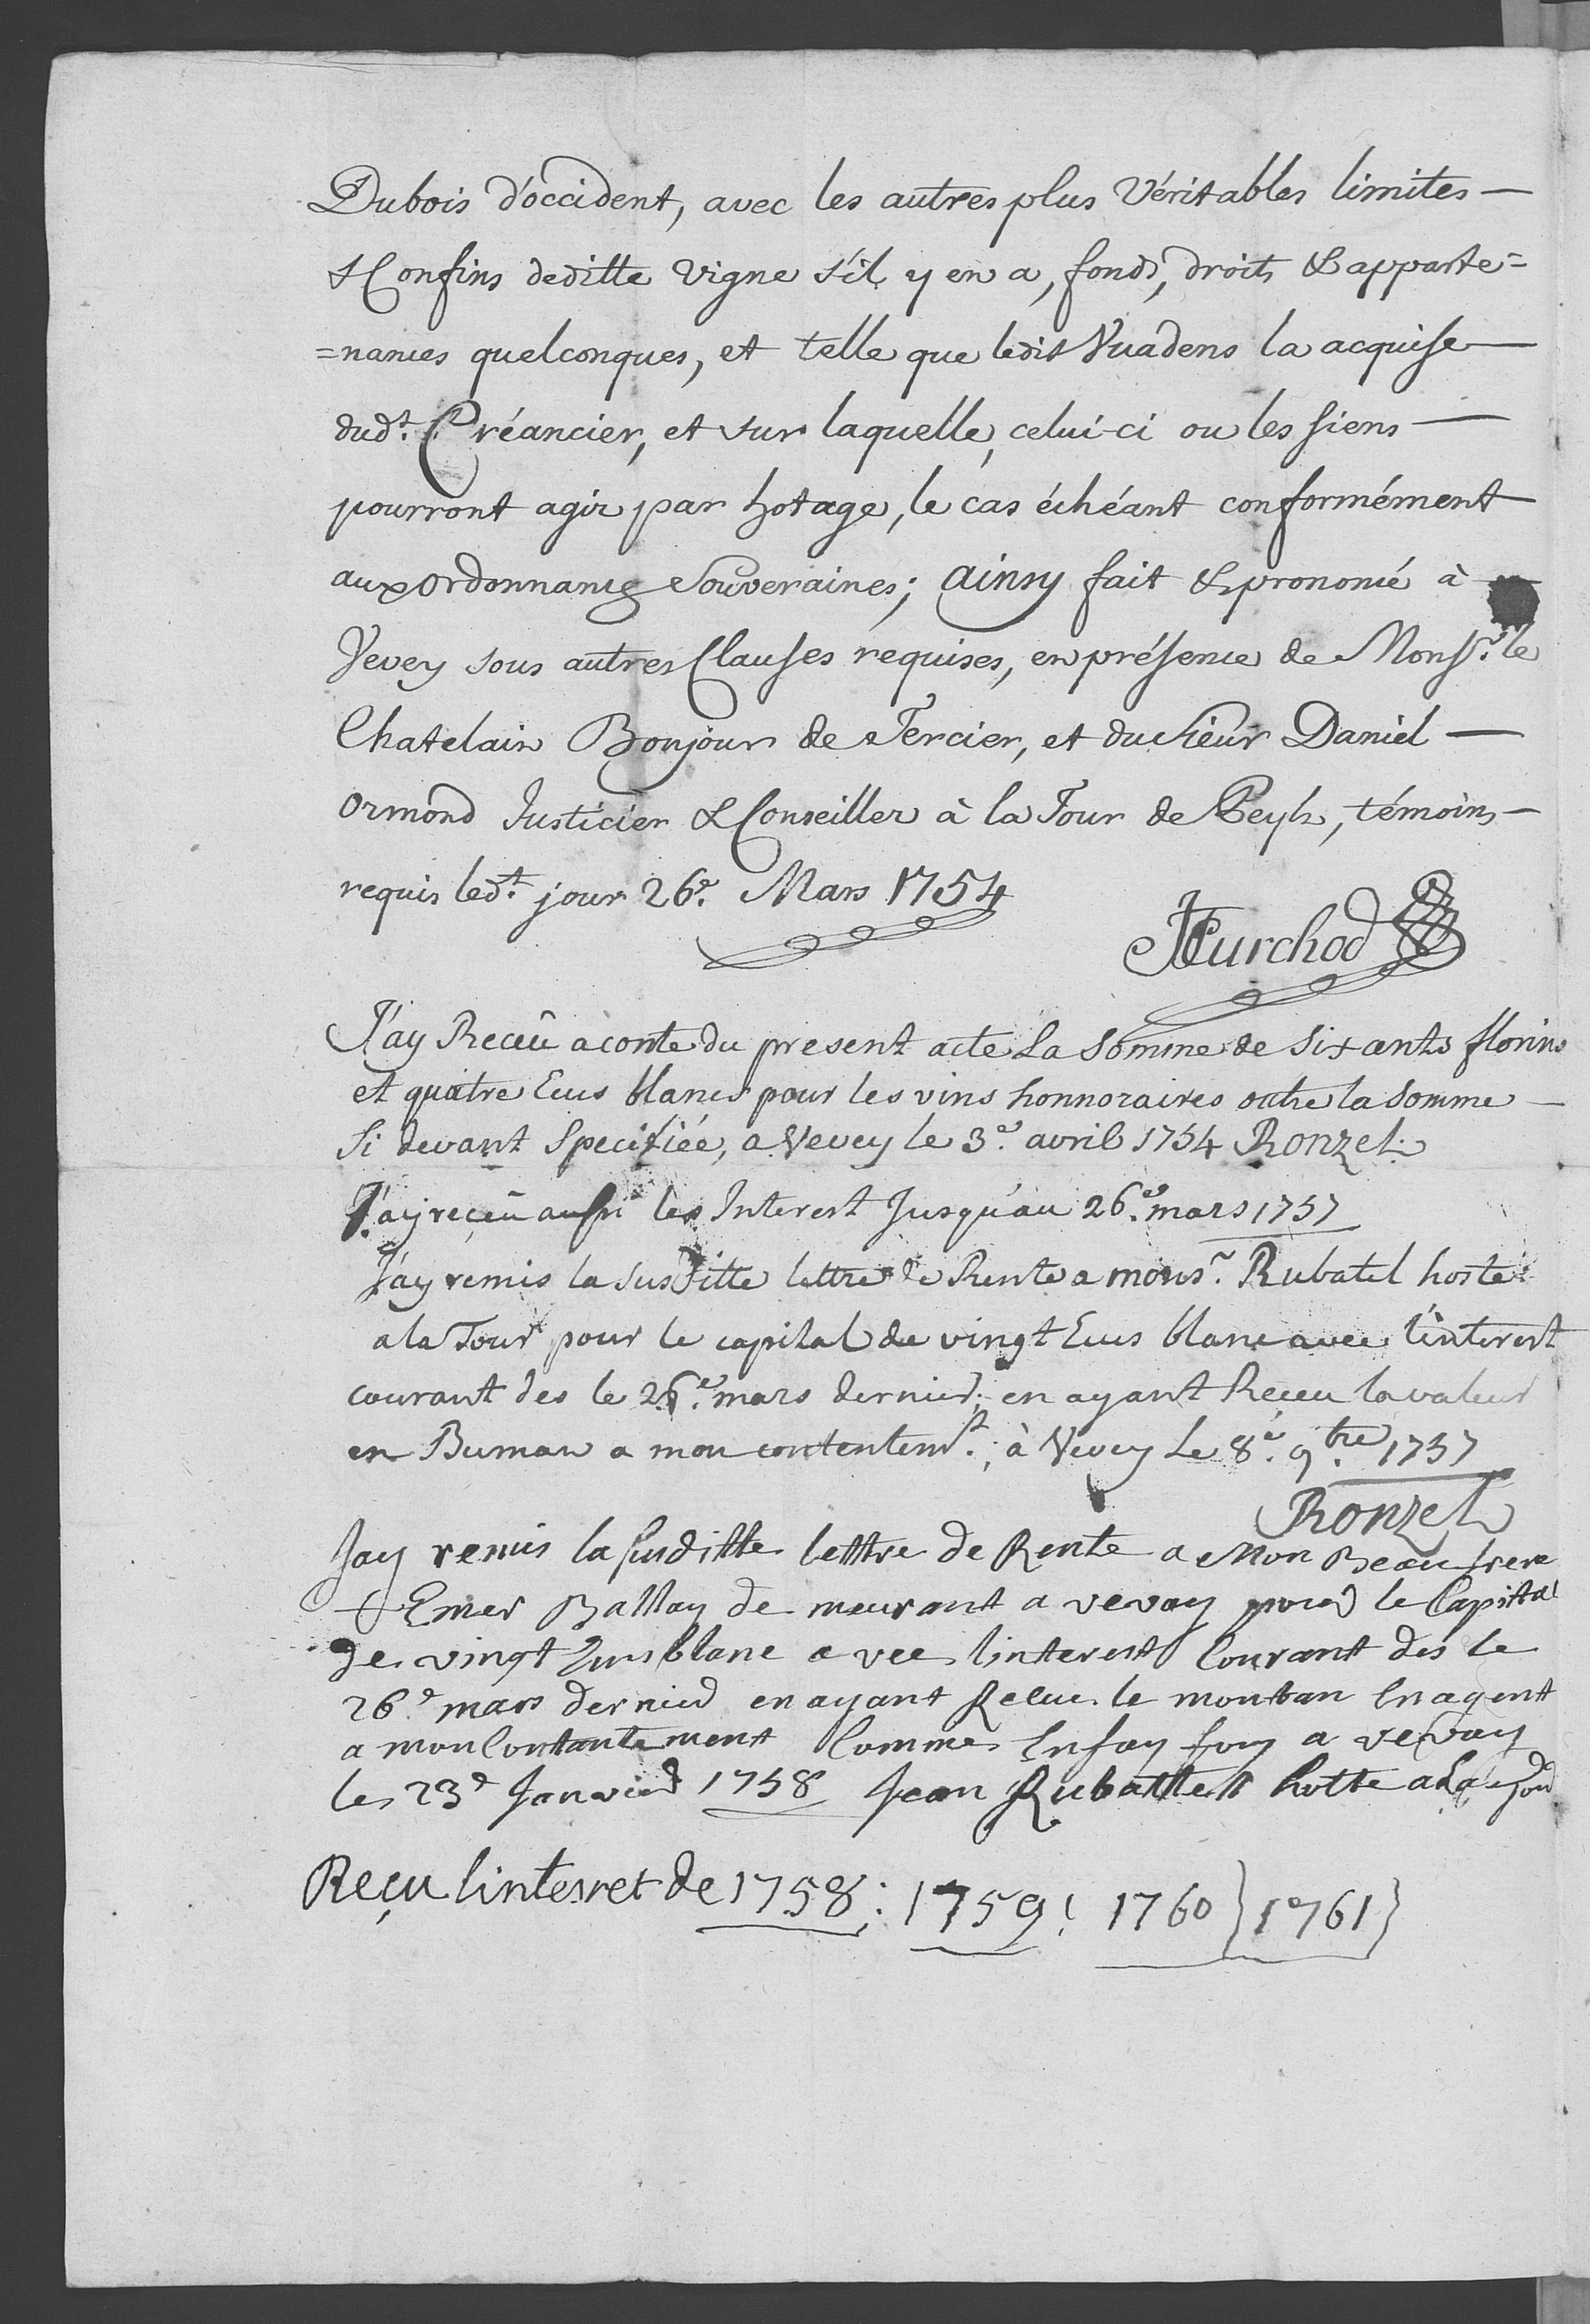 Dubois d'occident, avec les autres plus Véritables limites —
& Confins deditte Vigne s'il y en a, fonds, droits & apparte=
=nances quelconques, et telle que ledit Vuadens la acquise —
dud.t Créancier, et sur laquelle, celui-ci ou les siens —
pourront agir par hotage, le cas échéant conformément
aux ordonnances Souveraines; ainsy fait & prononcé à
Vevey sous autres Clauses requises, en présence de Mons.r le
Chatelain Bonjour de Tercier, et du Sieur Daniel —
Ormond Justicier & Conseiller à la Tour de Peylz, témoins —
requis led.t jour 26.e Mars 1754
Curchod
J'ay Receü a conte du present acte La Somme de Six cents florins
et quatre Ecus blancs pour les vins honnoraires outre la Somme —
Si devant Specifiée, a Vevey le 3.e avril 1754 Ronzel
J'ay reçeu aussi les Interest Jusqu'au 26.e mars 1757
J'ay remis la susditte lettre de Rente a mons.r Rubatel hoste
a la Tour pour le capital de vingt Ecus blanc avec l'interest
courant des le 26.e mars dernier; en ayant Receu la valeur
en Buman a mon contentem.t; à Vevey Le 8.e 9.bre 1757
Ronzel
Jay remis la suditte lettre de Rente a Mon Beau frere
Emer Ballay de meurant a vevay pour le Capittal
de vingt Ecus blanc avec linterest Courant des le
26.e mars dernier en ayant Recue le montan En agent
a mon Contantement Comme En fay foy a vevay
le 23.e Janvier 1758 Jean Rubattel hotte a La Tour
Reçu linterret de 1758: 1759: 1760} 1761}